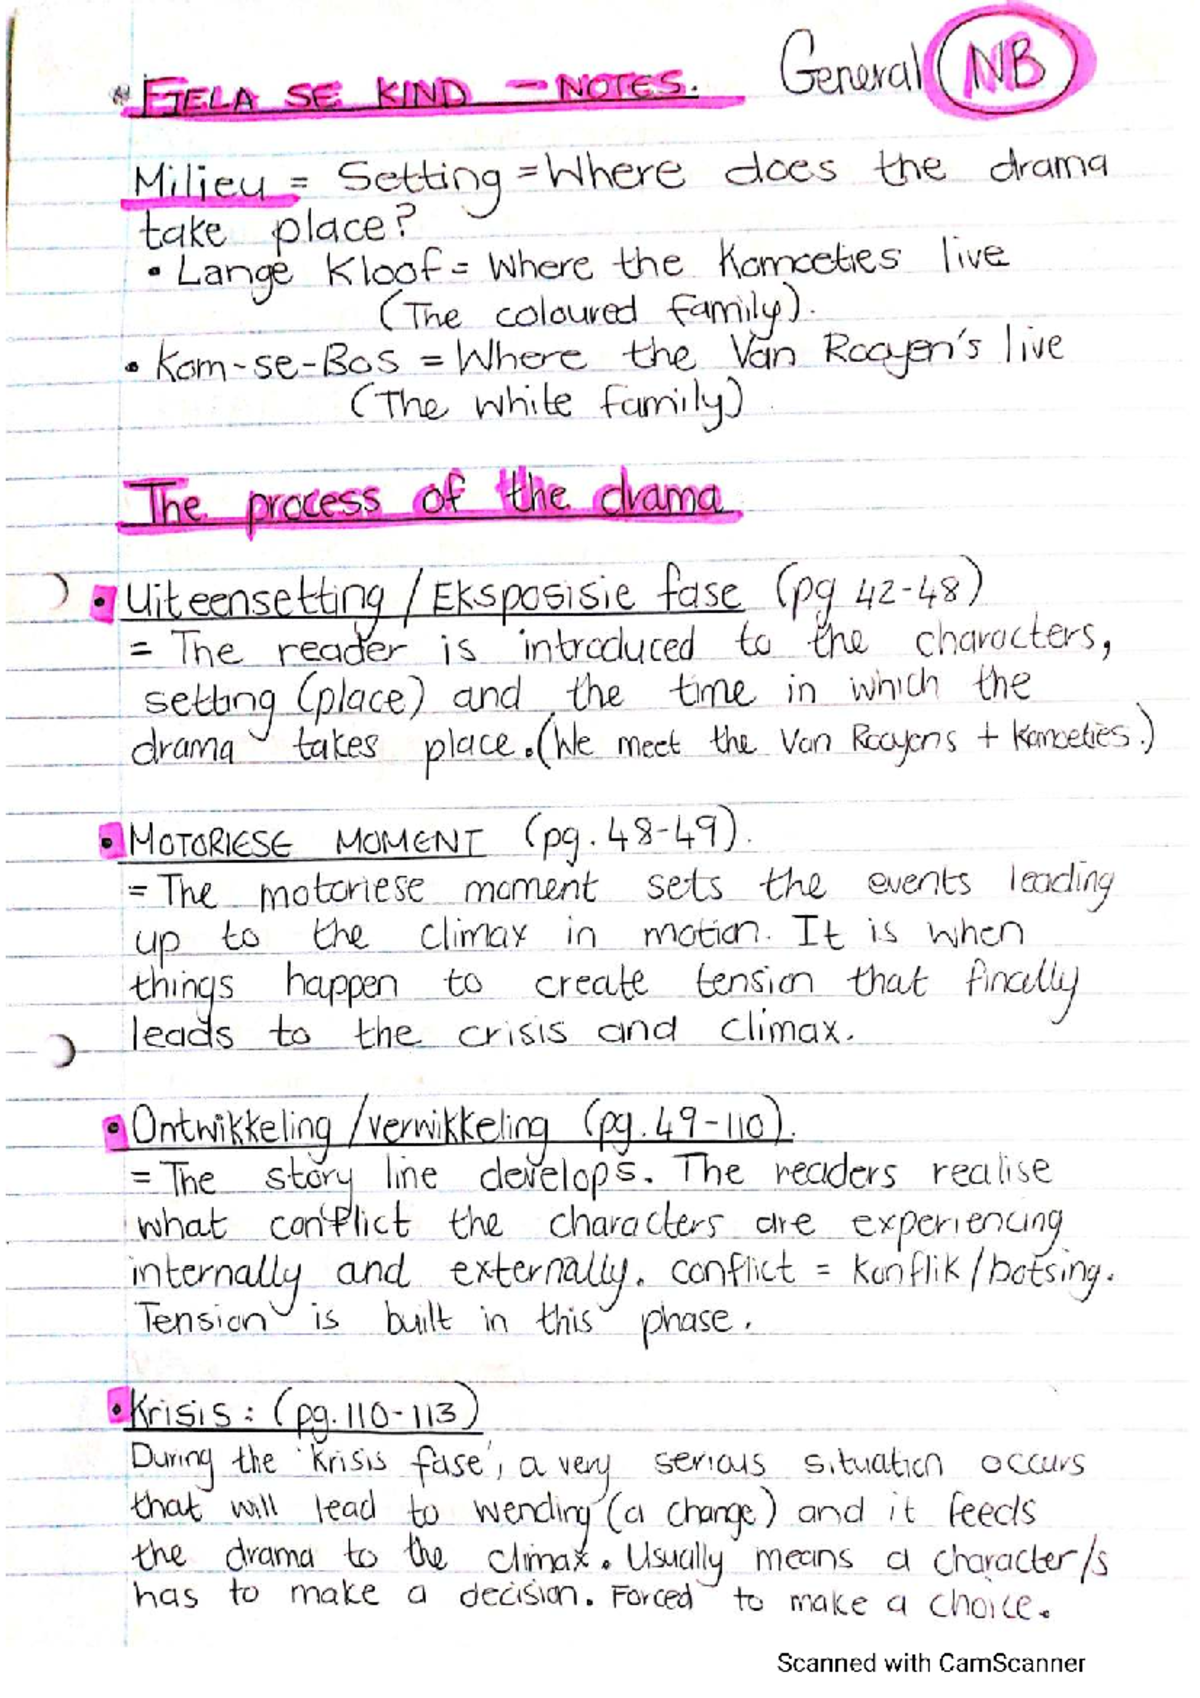 General NB
* FIELA SE KIND - NOTES.
Milieu = Setting = Where does the drama
take place?
• Lange Kloof = Where the Komoeties live
(The coloured family).
• Kom-se-Bos = Where the Van Rooyen's live
(The white family)
The process of the drama
• Uiteensetting / Eksposisie fase (pg 42-48)
= The reader is introduced to the characters,
setting (place) and the time in which the
drama takes place. (We meet the Van Rooyens + Komoeties.)
• MOTORIESE MOMENT (pg. 48-49).
= The motoriese moment sets the events leading
up to the climax in motion. It is when
things happen to create tension that finally
leads to the crisis and climax.
• Ontwikkeling /verwikkeling (pg. 49-110).
= The story line develops. The readers realise
what conflict the characters are experiencing
internally and externally. conflict = Konflik/botsing.
Tension is built in this phase.
• Krisis: (pg. 110-113)
During the 'Krisis fase', a very serious situation occurs
that will lead to wending (a change) and it feeds
the drama to the climax. Usually means a character/s
has to make a decision. Forced to make a choice.
Scanned with CamScanner